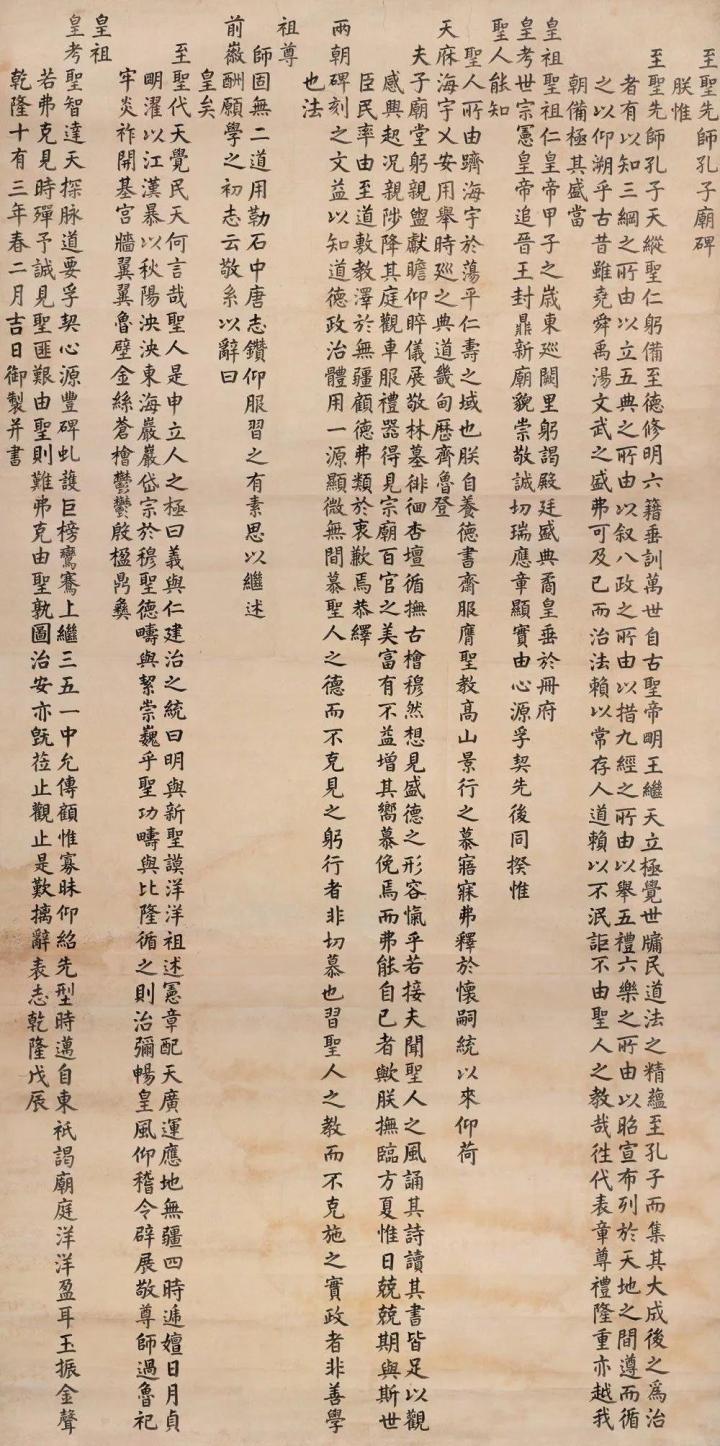 至聖先師孔子廟碑
朕惟
至聖先師孔子天縱聖仁躬備至德修明六籍垂訓萬世自古聖帝明王繼天立極覺世牖民道法之精蘊至孔子而集其大成後之為治
者有以知三綱之所由以立五典之所由以叙八政之所由以措九經之所由以舉五禮六樂之所由以昭宣布列於天地之間遵而循
之以仰溯乎古昔雖堯舜禹湯文武之盛弗可及已而治法賴以常存人道賴以不泯詎不由聖人之教哉徃代表章尊禮隆重亦越我
朝備極其盛當
皇祖聖祖仁皇帝甲子之歲東廵闕里躬謁殿廷盛典矞皇垂於冊府
皇考世宗憲皇帝追晉王封鼎新廟貌崇敬誠切瑞應章顯實由心源孚契先後同揆惟
聖人能知
聖人所由躋海宇於蕩平仁壽之域也朕自養德書齋服膺聖教髙山景行之慕寤寐弗釋於懷嗣統以來仰荷
天庥海宇乂安用舉時廵之典道畿甸歷齊魯登
夫子廟堂躬親盥獻瞻仰睟儀展敬林墓徘徊杏壇循撫古檜穆然想見盛德之形容愾乎若接夫聞聖人之風誦其詩讀其書皆足以觀
感興起况親陟降其庭觀車服禮器得見宗廟百官之美富有不益增其嚮慕俛焉而弗能自已者歟朕撫臨方夏惟日兢兢期與斯世
臣民率由至道敷教澤於無疆顧德弗類於衷歉焉恭繹
兩朝碑刻之文益以知道德政治體用一源顯微無間慕聖人之德而不克見之躬行者非切慕也習聖人之教而不克施之實政者非善學
也法
祖尊
師固無二道用勒石中唐志鑽仰服習之有素思以繼述
前徽酬願學之初志云敬系以辭曰
皇矣
至聖代天覺民天何言哉聖人是申立人之極曰義與仁建治之統曰明與新聖謨洋洋祖述憲章配天廣運應地無疆四時遞嬗日月貞
明濯以江漢暴以秋陽泱泱東海巖巖岱宗於穆聖德疇與絜崇巍乎聖功疇與比隆循之則治彌暢皇風仰稽令辟展敬尊師過魯祀
牢炎祚開基宫牆翼翼魯壁金絲蒼檜鬱鬱殷楹鼎彝
皇祖
皇考聖智達天探脉道要孚契心源豐碑虬護巨榜鸞騫上繼三五一中允傳顧惟寡昧仰紹先型時邁自東祇謁廟庭洋洋盈耳玉振金聲
若弗克見時殫予誠見聖匪艱由聖則難弗克由聖孰圖治安亦既莅止觀止是歎摛辭表志乾隆戊辰
乾隆十有三年春二月吉日御製并書